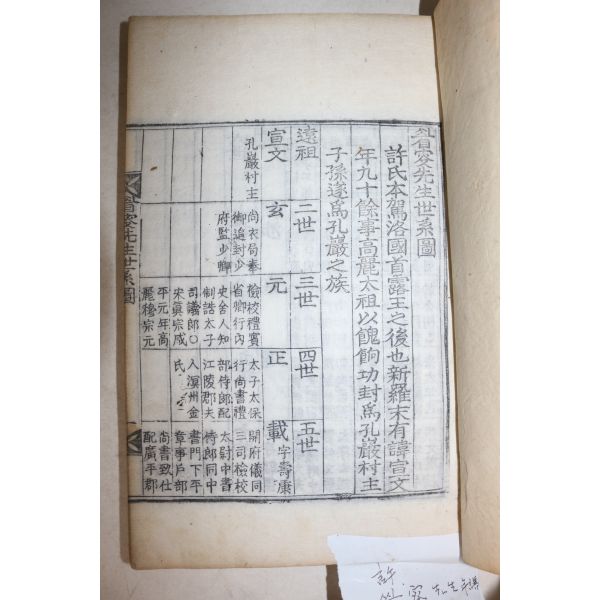 先生世系圖
許氏本駕洛國首露王之後也新羅末有諱宣文
年九十餘事高麗太祖以餽餉功封爲孔巖村主
子孫遂爲孔巖之族
遠祖 二世 三世 四世 五世
宣文 玄 元 正 載 字壽康
孔巖村主
尚衣局奉
御追封少
府監少卿
檢校禮賓
省卿行內
史舍人知
制誥太子
司議郎○
宋眞宗咸
平元年高
麗穆宗元
太子太保
行尚書禮
部侍郎配
江陵郡夫
人溟州金
氏
開府儀同
三司檢校
太尉中書
侍郎同中
書門下平
章事戶部
尚書致仕
配廣平郡
先生世系圖
許
先生年譜